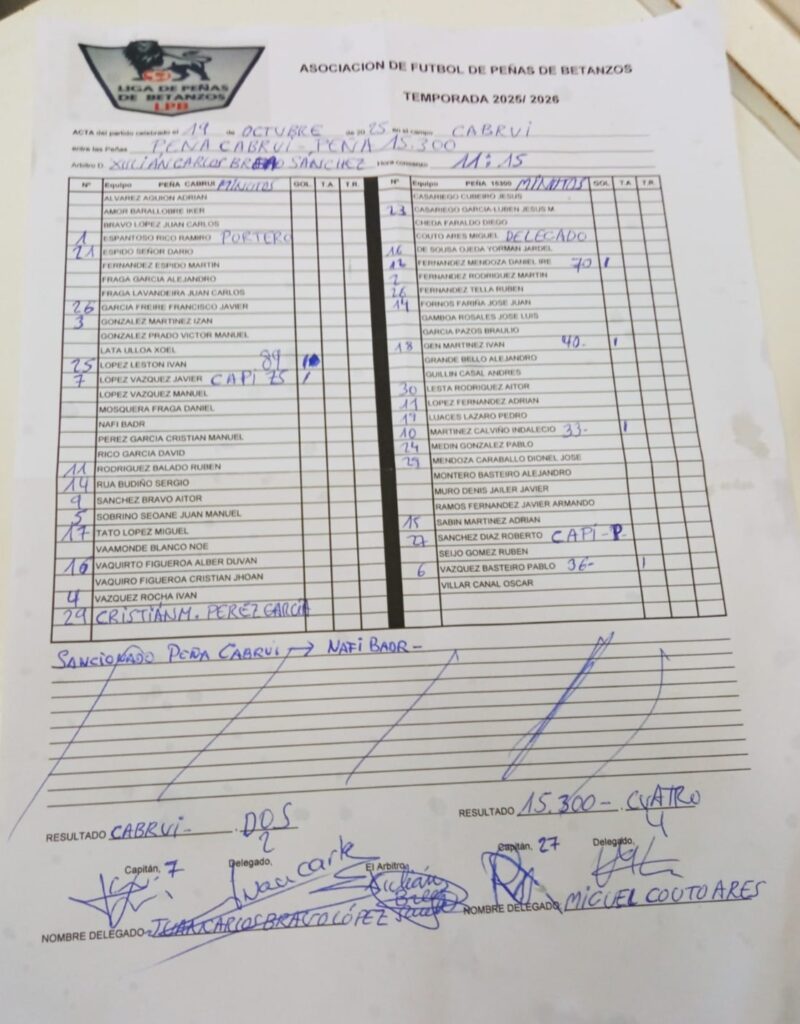 LIGA DE PEÑAS
DE BETANZOS
LPB
ASOCIACION DE FUTBOL DE PEÑAS DE BETANZOS
TEMPORADA 2025/ 2026
ACTA del partido celebrado el 19 de OCTUBRE de 2025 en el campo CABRUI
entre las Peñas PEÑA CABRUI - PEÑA 15.300
Arbitro D. XULIÁN CARLOS BREA SÁNCHEZ Hora comienzo 11:15
Nº Equipo PEÑA CABRUI MINUTOS GOL T.A. T.R.
ALVAREZ AGUION ADRIAN
AMOR BARALLOBRE IKER
BRAVO LOPEZ JUAN CARLOS
1 ESPANTOSO RICO RAMIRO PORTERO
21 ESPIDO SEÑOR DARIO
FERNANDEZ ESPIDO MARTIN
FRAGA GARCIA ALEJANDRO
FRAGA LAVANDEIRA JUAN CARLOS
26 GARCIA FREIRE FRANCISCO JAVIER
3 GONZALEZ MARTINEZ IZAN
GONZALEZ PRADO VICTOR MANUEL
LATA ULLOA XOEL
25 LOPEZ LESTON IVAN 89
7 LOPEZ VAZQUEZ JAVIER CAPI 75 1
LOPEZ VAZQUEZ MANUEL
MOSQUERA FRAGA DANIEL
NAFI BADR
PEREZ GARCIA CRISTIAN MANUEL
RICO GARCIA DAVID
11 RODRIGUEZ BALADO RUBEN
14 RUA BUDIÑO SERGIO
9 SANCHEZ BRAVO AITOR
5 SOBRINO SEOANE JUAN MANUEL
17 TATO LOPEZ MIGUEL
VAAMONDE BLANCO NOE
16 VAQUIRTO FIGUEROA ALBER DUVAN
VAQUIRO FIGUEROA CRISTIAN JHOAN
4 VAZQUEZ ROCHA IVAN
29 CRISTIÁN M. PEREZ GARCIA
Nº Equipo PEÑA 15300 MINUTOS GOL T.A. T.R.
CASARIEGO CUBEIRO JESUS
23 CASARIEGO GARCIA-LUBEN JESUS M.
CHEDA FARALDO DIEGO
COUTO ARES MIGUEL DELEGADO
16 DE SOUSA OJEDA YORMAN JARDEL
12 FERNANDEZ MENDOZA DANIEL IRE 70 1
2 FERNANDEZ RODRIGUEZ MARTIN
26 FERNANDEZ TELLA RUBEN
14 FORNOS FARIÑA JOSE JUAN
GAMBOA ROSALES JOSE LUIS
GARCIA PAZOS BRAULIO
18 GEN MARTINEZ IVAN 40. 1
GRANDE BELLO ALEJANDRO
GUILLIN CASAL ANDRES
30 LESTA RODRIGUEZ AITOR
11 LOPEZ FERNANDEZ ADRIAN
17 LUACES LAZARO PEDRO
10 MARTINEZ CALVIÑO INDALECIO 33- 1
24 MEDIN GONZALEZ PABLO
29 MENDOZA CARABALLO DIONEL JOSE
MONTERO BASTEIRO ALEJANDRO
MURO DENIS JAILER JAVIER
RAMOS FERNANDEZ JAVIER ARMANDO
15 SABIN MARTINEZ ADRIAN
27 SANCHEZ DIAZ ROBERTO CAPI-P.
SEIJO GOMEZ RUBEN
6 VAZQUEZ BASTEIRO PABLO 36- 1
VILLAR CANAL OSCAR
SANCIONADO PEÑA CABRUI → NAFI BADR -
RESULTADO CABRUI- DOS
2
RESULTADO 15.300- CUATRO
4
Capitán, 7 Delegado, El Arbitro Capitán, 27 Delegado,
Xulián
Brea
NOMBRE DELEGADO JUAN CARLOS BRAVO LÓPEZ
NOMBRE DELEGADO MIGUEL COUTO ARES